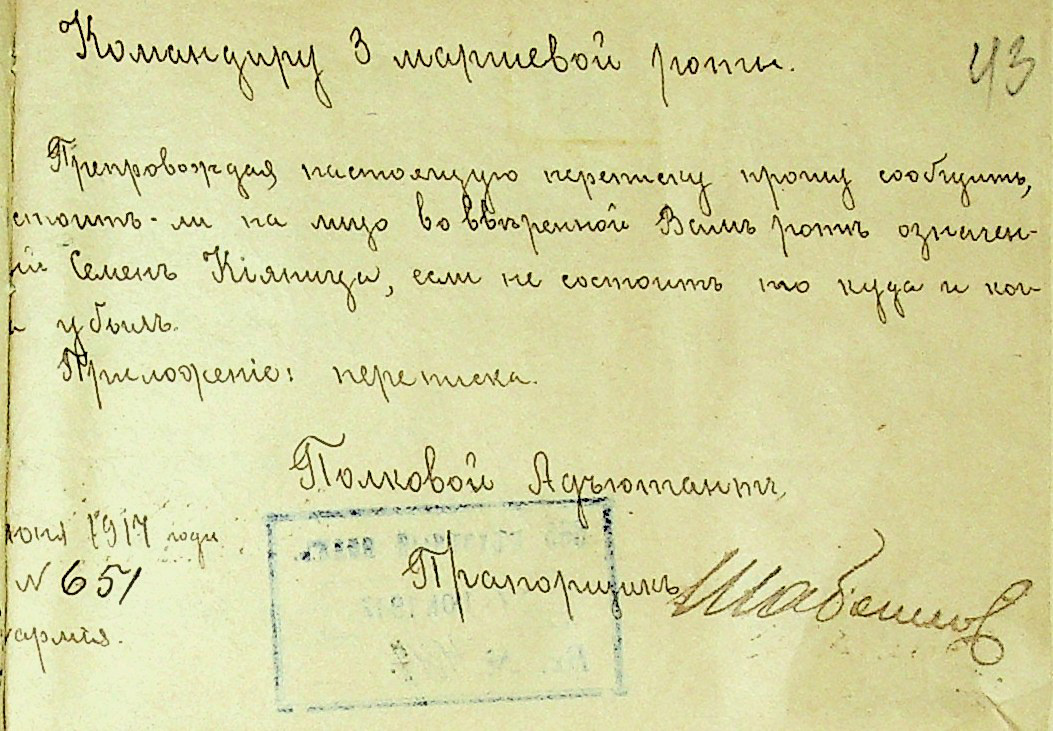 Командиру 3 маршевой роты.
43
Препровождая настоящую переписку прошу сообщить,
стоитъ-ли на лицо во ввѣренной Вамъ ротѣ означен-
ій Семенъ Кіяница, если не состоитъ то куда и ког-
убылъ.
Приложеніе: переписка.
Полковой Адъютантъ,
юня 1917 года
Прапорщикъ
N 651
армія.